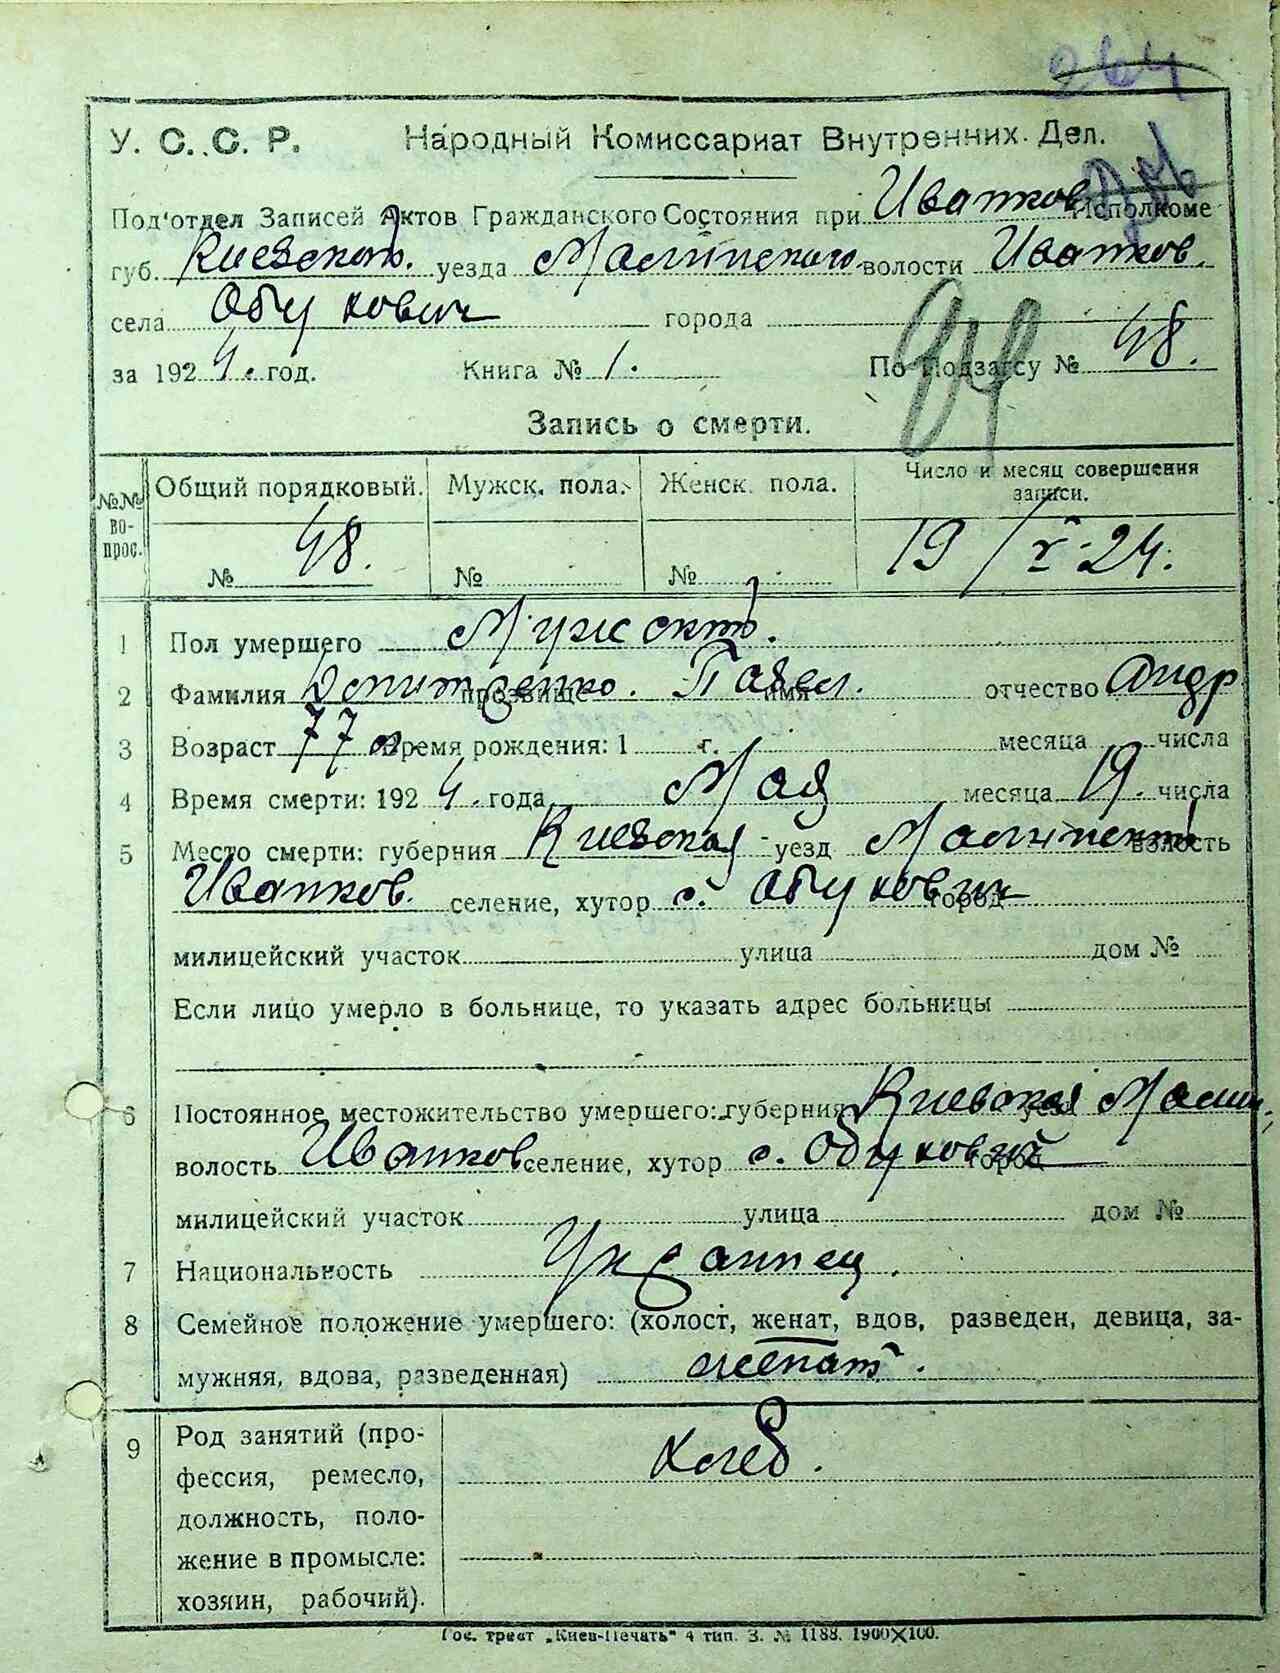 264
У. С. С. Р. Народный Комиссариат Внутренних Дел.
Под'отдел Записей Актов Гражданского Состояния при Иванков Исполкоме
губ. Киевской. уезда Малинского волости Иванков.
села Обуховичи города
за 1924. год. Книга № 1. По Подзагсу № 48.
Запись о смерти.
№№ во-прос. Общий порядковый. Мужск. пола. Женск. пола. Число и месяц совершения записи.
№ 48. № № 19/V-24.
1 Пол умершего Мужской.
2 Фамилия прозвище имя Павел. отчество Андр
3 Возраст 77 Время рождения: 1 г. месяца числа
4 Время смерти: 1924. года Мая месяца 19. числа
5 Место смерти: губерния Киевская уезд Малинский волость
Иванков. селение, хутор с. Обуховичи город
милицейский участок улица дом №
Если лицо умерло в больнице, то указать адрес больницы
6 Постоянное местожительство умершего: губерния Киевская уезд Малин,
волость Иванков селение, хутор с. Обуховичи город
милицейский участок улица дом №
7 Национальность Украинец.
8 Семейное положение умершего: (холост, женат, вдов, разведен, девица, за-
мужняя, вдова, разведенная) женат.
9 Род занятий (про-
фессия, ремесло, хлеб.
должность, поло-
жение в промысле:
хозяин, рабочий).
Гос. трест „Киев-Печать“ 4 тип. З. № 1188. 1900X100.